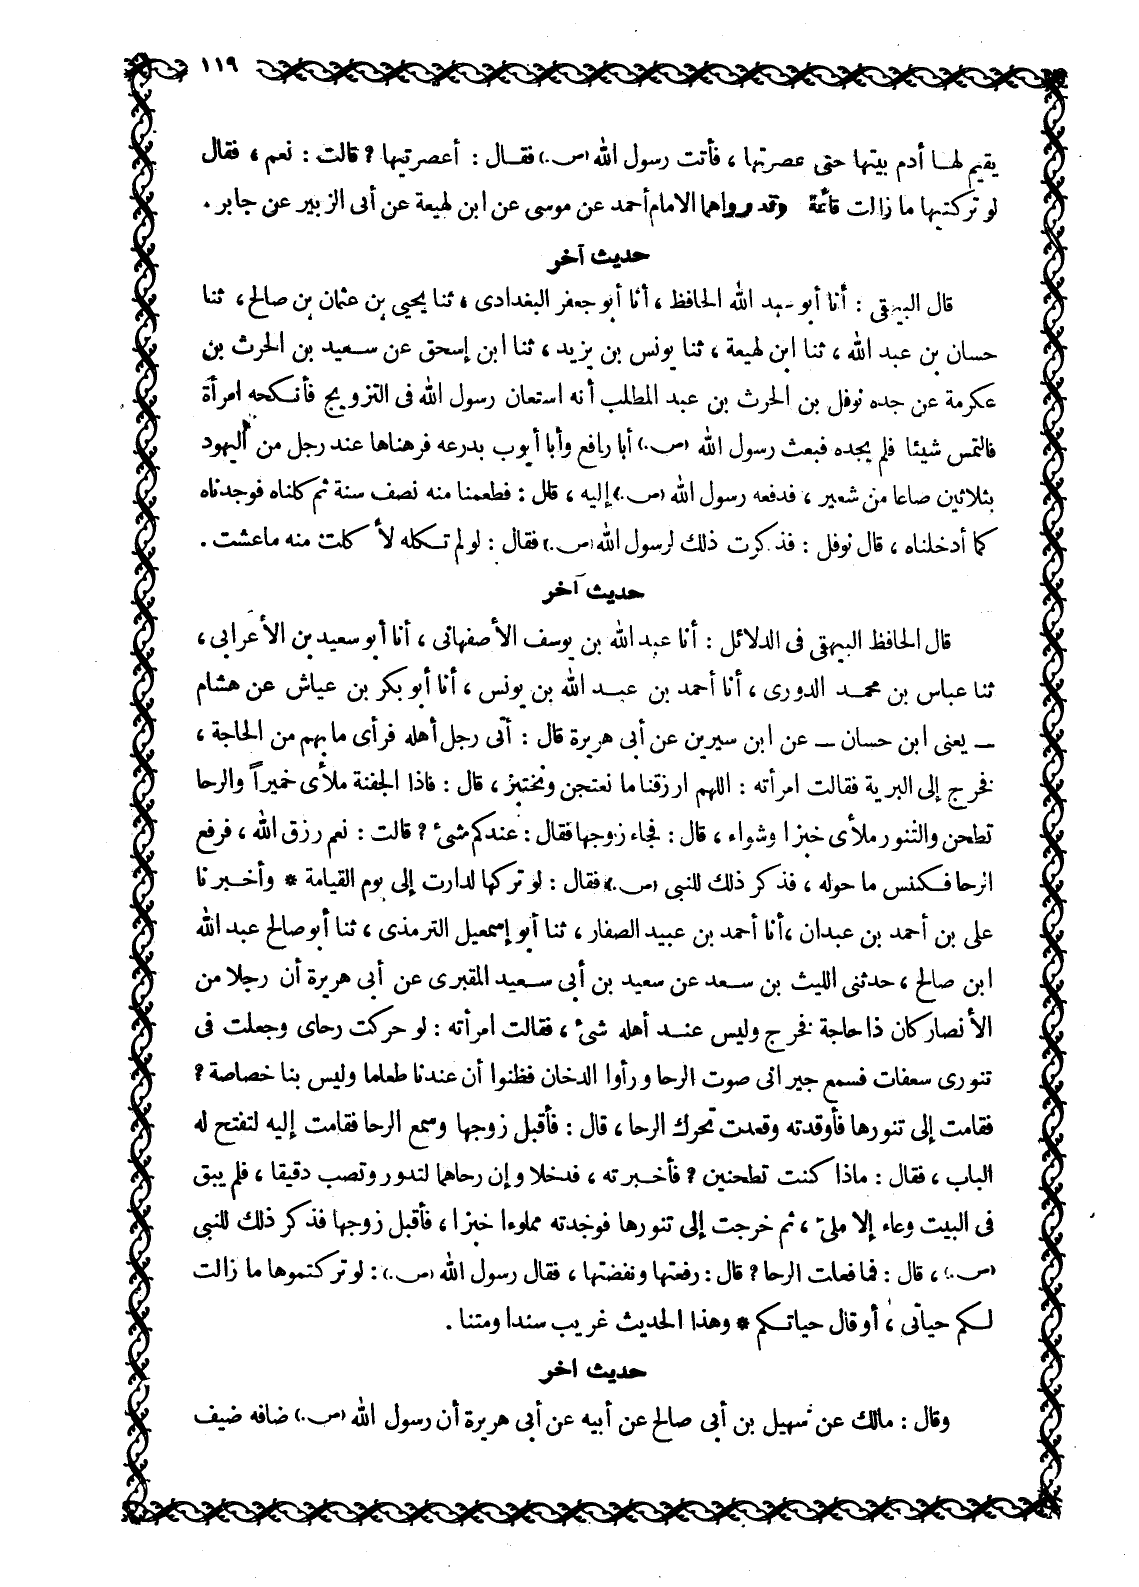 ١١٩
يقيم لهـا أدم بيتها حتى عصرتها ، فأتت رسول الله (ص.) فقـال : أعصرتيها ؟ قالت : نعم ، فقال
لو تركتيها ما زالت قائمة وقد رواهما الامام أحمد عن موسى عن ابن لهيعة عن أبى الزبير عن جابر .
حديث آخر
قال البيهقى : أنا أبو عبد الله الحافظ ، أنا أبو جعفر البغدادى ، ثنا يحيى بن عثمان بن صالح ، ثنا
حسان بن عبد الله ، ثنا ابن لهيعة ، ثنا يونس بن يزيد ، ثنا ابن إسحق عن سـعيد بن الحرث بن
عكرمة عن جده نوفل بن الحرث بن عبد المطلب أنه استعان رسول الله فى التزويج فأنـكحه امرأة
فالتمس شيئا فلم يجده فبعث رسول الله (ص.) أبا رافع وأبا أيوب بدرعه فرهناها عند رجل من اليهود
بثلاثين صاعا من شعير ، فدفعه رسول الله (ص.) إليه ، قال : فطعمنا منه نصف سنة ثم كلناه فوجدناه
كما أدخلناه ، قال نوفل : فذكرت ذلك لرسول الله (ص.) فقال : لو لم تـكله لأ كلت منه ماعشت .
حديث آخر
قال الحافظ البيهقى فى الدلائل : أنا عبد الله بن يوسف الأصفهانى ، أنا أبو سعيد بن الأعرابى ،
ثنا عباس بن محمـد الدورى ، أنا أحمد بن عبـد الله بن يونس ، أنا أبو بكر بن عياش عن هشام
ــ يعنى ابن حسان ــ عن ابن سيرين عن أبى هريرة قال : أتى رجل أهله فرأى ما بهم من الحاجة ،
فخرج إلى البرية فقالت امرأته : اللهم ارزقنا ما نعتجن ونختبز ، قال : فاذا الجفنة ملأى خميراً والرحا
تطحن والتنور ملأى خبزا وشواء ، قال : فجاء زوجها فقال : عندكم شىء ؟ قالت : نعم رزق الله ، فرفع
الرحا فـكنس ما حوله ، فذكر ذلك للنبى (ص.) فقال : لو تركها لدارت إلى يوم القيامة * وأخبرنا
على بن أحمد بن عبدان ،أنا أحمد بن عبيد الصفار ، ثنا أبو إسمعيل الترمذى ، ثنا أبو صالح عبد الله
ابن صالح ، حدثنى الليث بن سـعد عن سعيد بن أبى سـعيد المقبرى عن أبى هريرة أن رجلا من
الأنصار كان ذا حاجة فخرج وليس عنـد أهله شىء ، فقالت امرأته : لو حركت رحاى وجعلت فى
تنورى سعفات فسمع جيرانى صوت الرحا ورأوا الدخان فظنوا أن عندنا طعاما وليس بنا خصاصة ؟
فقامت إلى تنورها فأوقدته وقعدت تحرك الرحا ، قال : فأقبل زوجها وسمع الرحا فقامت إليه لتفتح له
الباب ، فقال : ماذا كنت تطحنين ؟ فأخبرته ، فدخلا وإن رحاهما لتدور وتصب دقيقا ، فلم يبق
فى البيت وعاء إلا ملئ ، ثم خرجت إلى تنورها فوجدته مملوءا خبزا ، فأقبل زوجها فذكر ذلك للنبى
(ص.) ، قال : فما فعلت الرحا ؟ قال : رفعتها ونفضتها ، فقال رسول الله (ص.) : لو تركتموها ما زالت
لـكم حياتى ، أو قال حياتـكم * وهذا الحديث غريب سندا ومتنا .
حديث آخر
وقال : مالك عن سهيل بن أبى صالح عن أبيه عن أبى هريرة أن رسول الله (ص.) ضافه ضيف